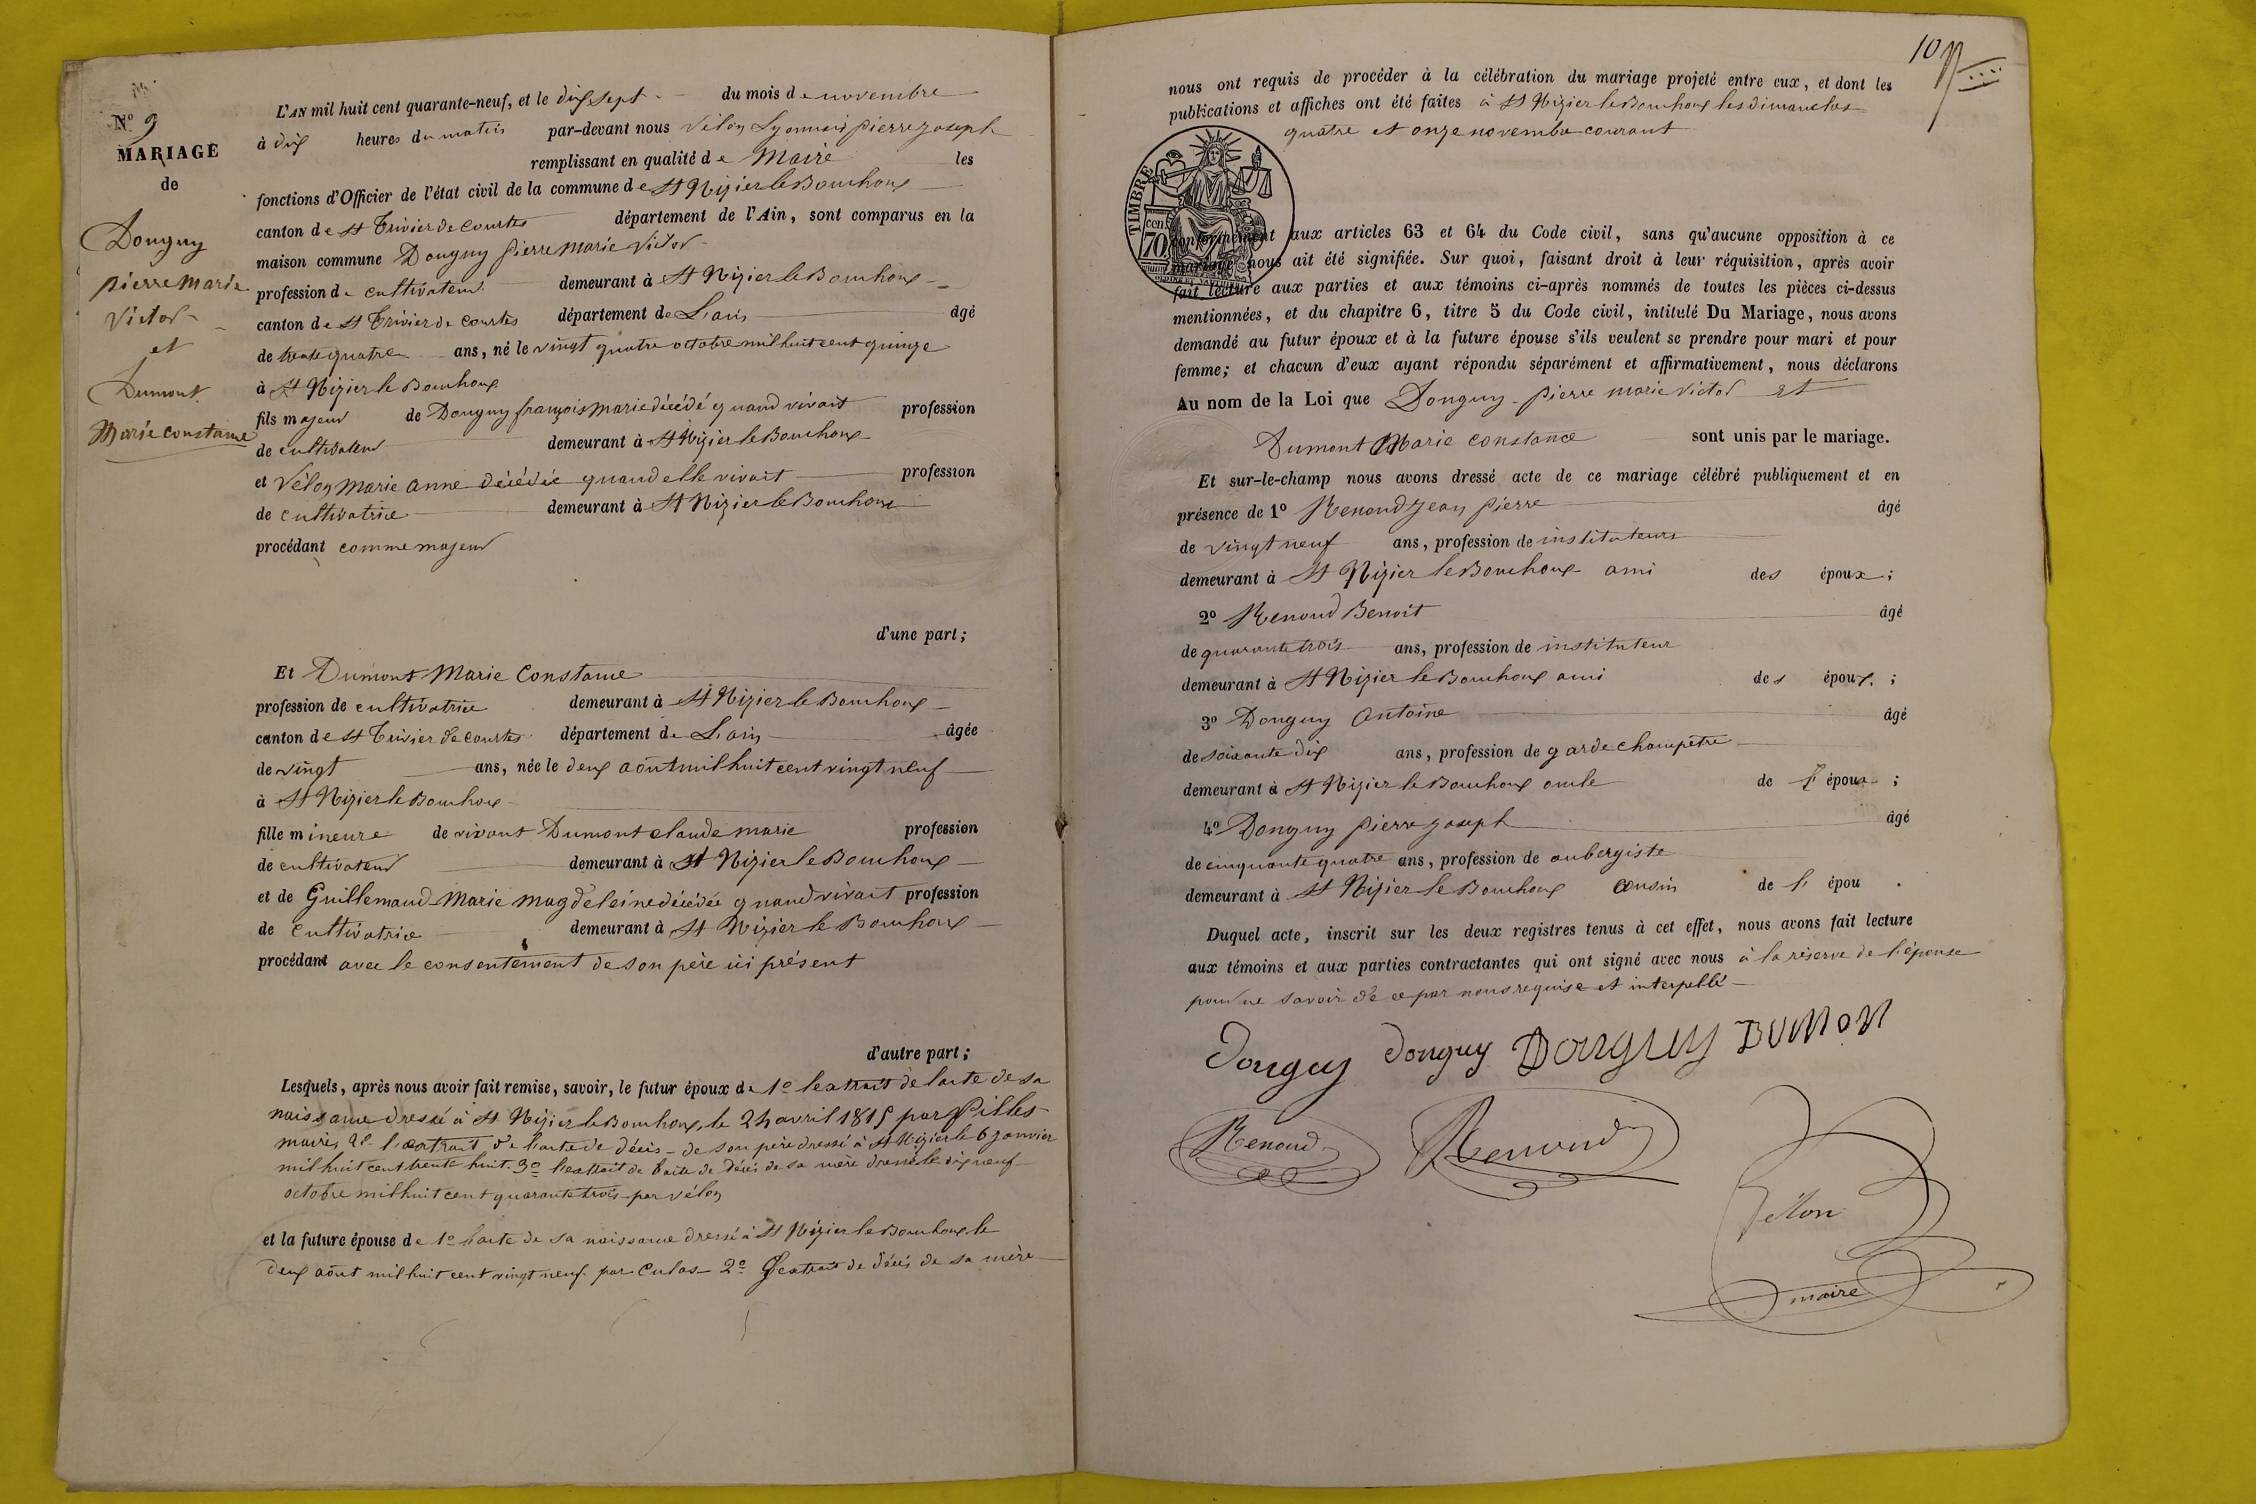 N° 9
MARIAGE
de
Donguy
pierre marie
victor
et
Dumont
Marie constance
L'AN mil huit cent quarante-neuf, et le dix sept du mois de novembre
à dix heures du matin par-devant nous Vélon Lyonnais pierre joseph
remplissant en qualité de Maire les
fonctions d'Officier de l'état civil de la commune de St Nizier le Bouchoux
canton de St Trivier de Courtes département de l'Ain, sont comparus en la
maison commune Donguy pierre marie victor
profession de cultivateur demeurant à St Nizier le Bouchoux
canton de St Trivier de Courtes département de L'ain âgé
de trente quatre ans, né le vingt quatre octobre mil huit cent quinze
à St Nizier le Bouchoux
fils majeur de Donguy françois marie décédé quand vivait profession
de cultivateur demeurant à St Nizier le Bouchoux
et Vélon Marie anne décédée quand elle vivait profession
de cultivatrice demeurant à St Nizier le Bouchoux
procédant comme majeur
d'une part;
Et Dumont Marie Constance
profession de cultivatrice demeurant à St Nizier le Bouchoux
canton de St Trivier de Courtes département de L'ain âgée
de vingt ans, née le deux août mil huit cent vingt neuf
à St Nizier le Bouchoux
fille mineure de vivant Dumont claude marie profession
de cultivateur demeurant à St Nizier le Bouchoux
et de Guillemaud Marie magdeleine décédée quand vivait profession
de Cultivatrice demeurant à St Nizier le Bouchoux
procédant avec le consentement de son père ici présent
d'autre part;
Lesquels, après nous avoir fait remise, savoir, le futur époux de 1° l'extrait de l'acte de sa
naissance dressé à St Nizier le Bouchoux le 24 avril 1815 par Pilles
maire, 2° l'extrait de l'acte de décès de son père dressé à St Nizier le 6 janvier
mil huit cent trente huit. 3° l'extrait de l'acte de décès de sa mère dressé le dix neuf
octobre mil huit cent quarante trois par vélon
et la future épouse de 1° l'acte de sa naissance dressé à St Nizier le Bouchoux le
deux août mil huit cent vingt neuf par Culas 2° l'extrait de décès de sa mère
10
nous ont requis de procéder à la célébration du mariage projeté entre eux, et dont les
publications et affiches ont été faites à St Nizier le Bouchoux les dimanches
quatre et onze novembre courant
TIMBRE
cen
70
conformément aux articles 63 et 64 du Code civil, sans qu'aucune opposition à ce
mariage nous ait été signifiée. Sur quoi, faisant droit à leur réquisition, après avoir
fait lecture aux parties et aux témoins ci-après nommés de toutes les pièces ci-dessus
mentionnées, et du chapitre 6, titre 5 du Code civil, intitulé Du Mariage, nous avons
demandé au futur époux et à la future épouse s'ils veulent se prendre pour mari et pour
femme; et chacun d'eux ayant répondu séparément et affirmativement, nous déclarons
Au nom de la Loi que Donguy pierre marie victor et
Dumont Marie constance sont unis par le mariage.
Et sur-le-champ nous avons dressé acte de ce mariage célébré publiquement et en
présence de 1° Renoud Jean pierre âgé
de vingt neuf ans, profession de instituteur
demeurant à St Nizier le Bouchoux ami des époux;
2° Renoud Benoit âgé
de quarante trois ans, profession de instituteur
demeurant à St Nizier le Bouchoux ami des époux;
3° Donguy Antoine âgé
de soixante dix ans, profession de garde champêtre
demeurant à St Nizier le Bouchoux oncle de l'époux;
4° Donguy pierre joseph âgé
de cinquante quatre ans, profession de aubergiste
demeurant à St Nizier le Bouchoux cousin de l'épou.
Duquel acte, inscrit sur les deux registres tenus à cet effet, nous avons fait lecture
aux témoins et aux parties contractantes qui ont signé avec nous à la réserve de l'épouse
pour ne savoir de ce par nous requise et interpellé
Donguy donguy DONGUY DUMON
Renoud Renoud
Vélon
maire